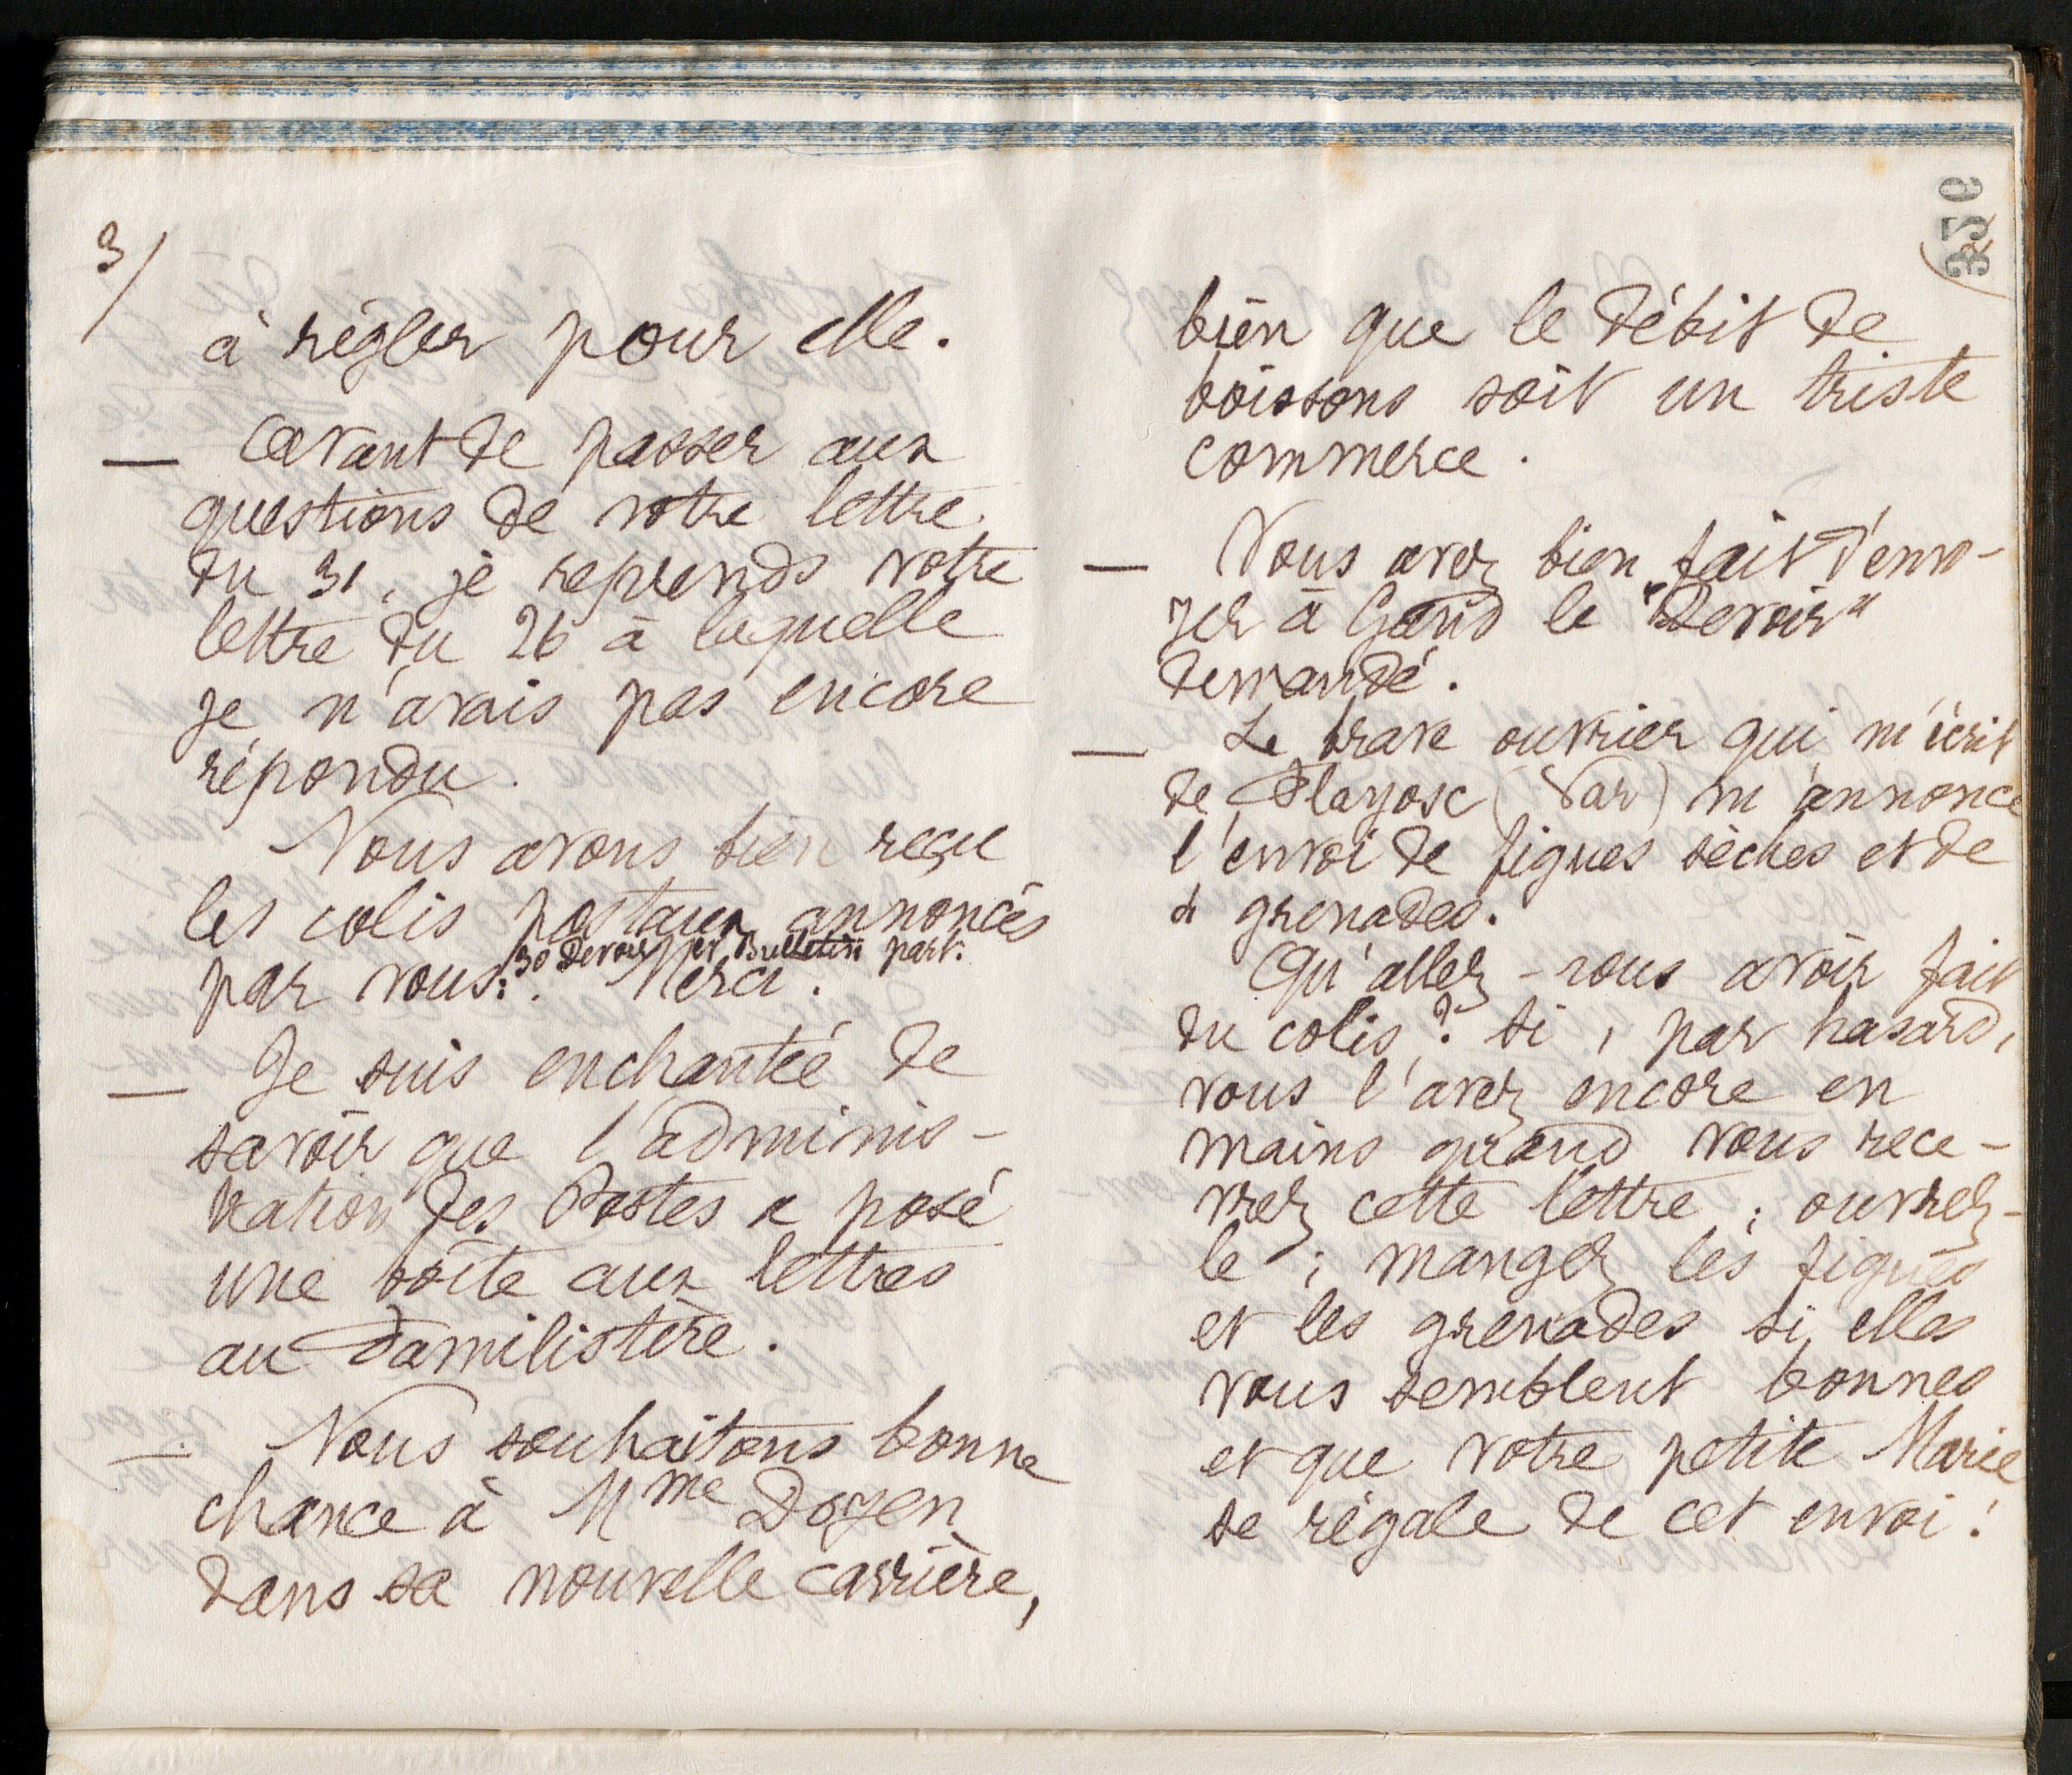 3/
à régler pour elle.
— Avant de passer aux
questions de votre lettre
du 31, je reprends votre
lettre du 26 à laquelle
je n'avais pas encore
répondu.
Nous avons bien reçu
les colis postaux annoncés
30 Devoir et Bulletin part.
par vous: . Merci.
— Je suis enchantée de
savoir que l'adminis-
tration des Postes a posé
une boîte aux lettres
au Familistère.
— Nous souhaitons bonne
chance à Mme Doyen
dans sa nouvelle carrière,
bien que le débit de
boissons soit un triste
commerce.
— Vous avez bien fait d'envo-
yer à Gand le "Devoir"
demandé.
— Le brave ouvrier qui m'écrit
de Flayosc (Var) m'annonce
l'envoi de figues sèches et de
grenades.
Qu'allez-vous avoir fait
du colis? Si, par hasard,
vous l'avez encore en
mains quand vous rece-
vrez cette lettre; ouvrez-
le; mangez les figues
et les grenades si elles
vous semblent bonnes
et que votre petite Marie
se régale de cet envoi!